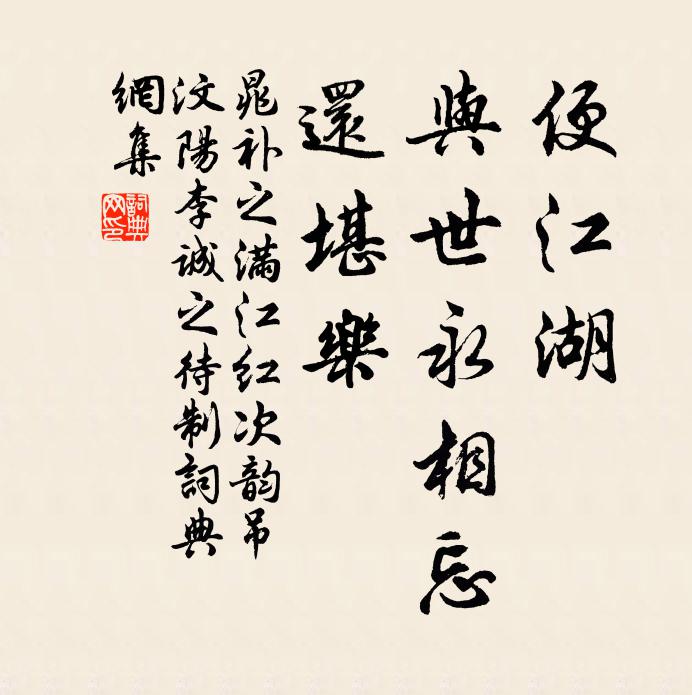 便江湖
與世永相忘
還堪樂
晁补之满江红次韵吊
汶陽李诚之待制詞典
網集
詞典网印